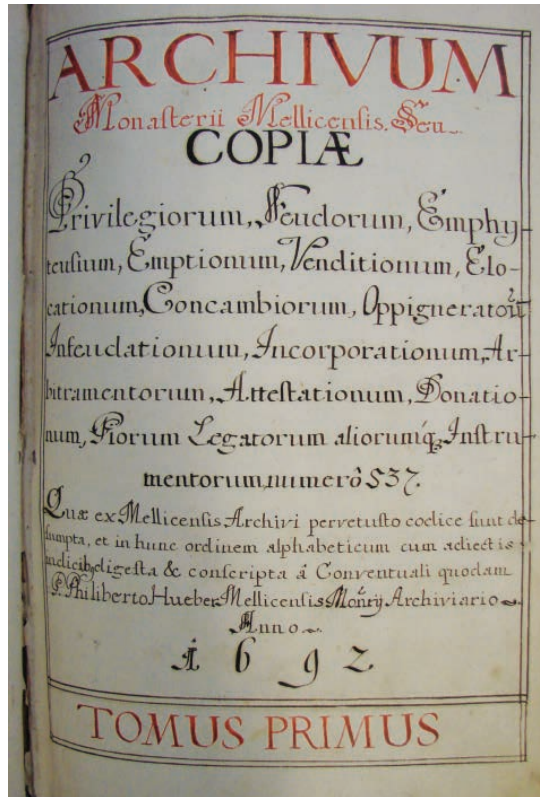 ARCHIVUM
Monasterii Mellicensis. Seu
COPIÆ
Privilegiorum, Feudorum, Emphy-
teusium, Emptionum, Venditionum, Elo-
cationum, Concambiorum, Oppigneratoũ
Infeudationum, Incorporationum, Ar-
bitramentorum, Attestationum, Donatio-
num, Piorum Legatorum aliorumq́₃ Instru-
mentorum, numerô 537.
Quæ ex Mellicensis Archivi pervetusto codice sunt de-
sumpta, et in hunc ordinem alphabeticum cum adiectis
indicib₉ digesta & conscripta â Conventuali quodam
P. Philiberto Hueber Mellicensis Monrij Archiviario
Anno
1692
TOMUS PRIMUS